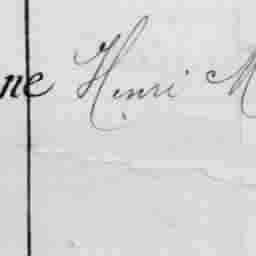 ne Henri M